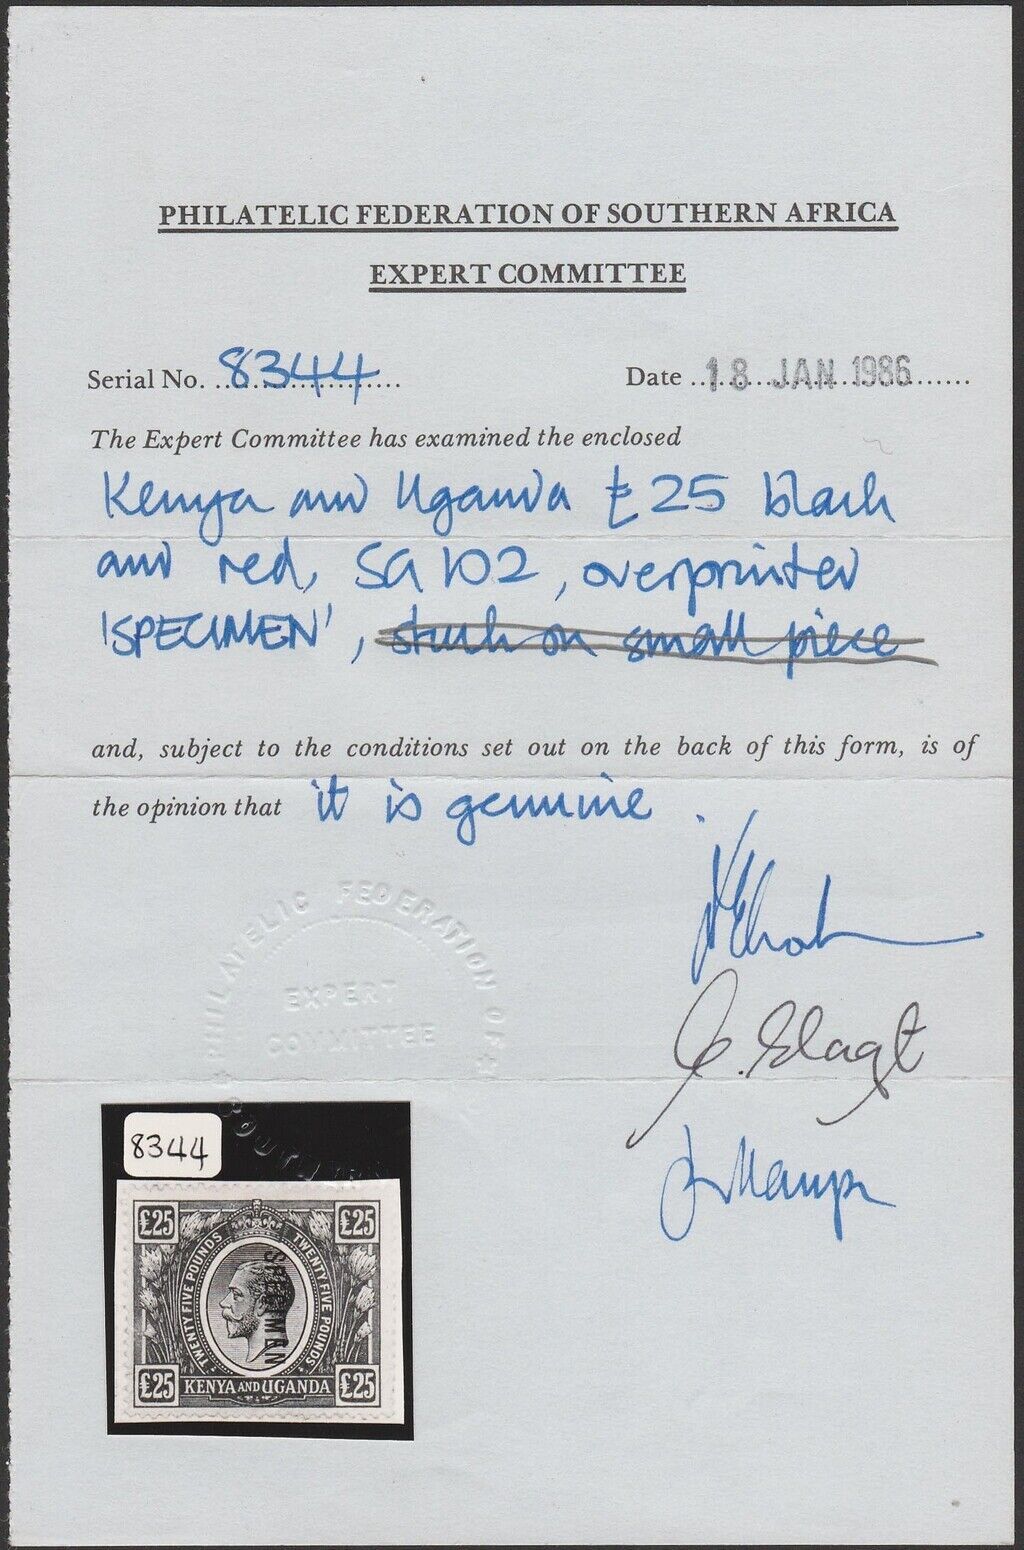 PHILATELIC FEDERATION OF SOUTHERN AFRICA
EXPERT COMMITTEE
Serial No. 8344 Date 18 JAN 1986
The Expert Committee has examined the enclosed
Kenya and Uganda £25 black
and red, SG 102, overprinted
'SPECIMEN', stuck on small piece
and, subject to the conditions set out on the back of this form, is of
the opinion that it is genuine.
PHILATELIC FEDERATION OF
EXPERT
COMMITTEE
8344
£25 £25
TWENTY FIVE POUNDS TWENTY FIVE POUNDS
SPECIMEN
£25 KENYA AND UGANDA £25